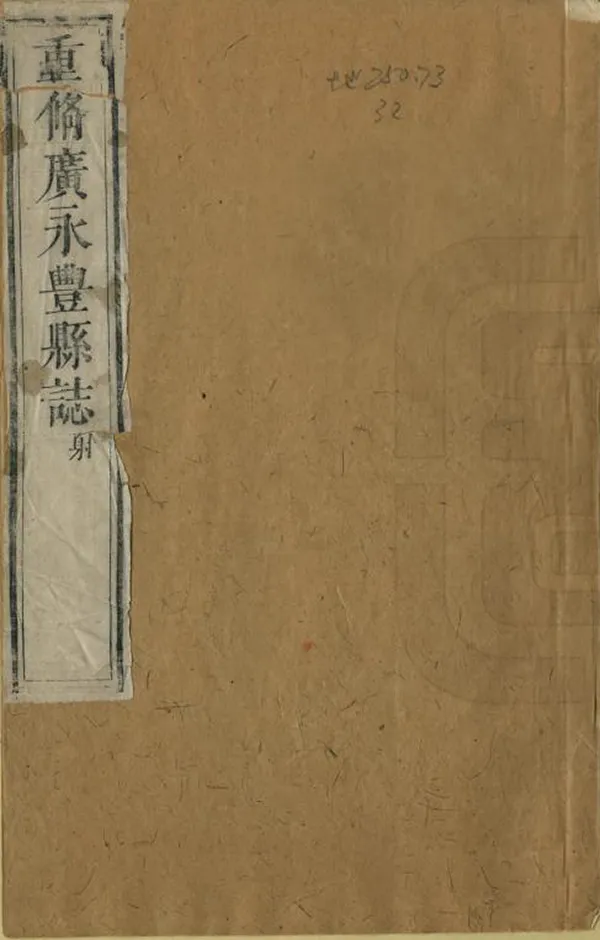 重脩廣永豐縣誌
射
地250.73
32